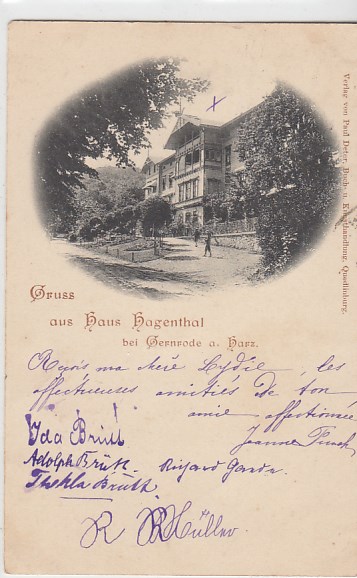 Verlag von Paul Deter, Buch- u. Kunsthandlung, Quedlinburg.
X
Gruss
aus Haus Hagenthal
bei Gernrode a. Harz.
Reçois ma chère Lydie, les
affectueuses amitiés de ton
amie affectionnée
Jeanne
Ida Brüll
Adolph Brüth.
Thekla Brüth.
R Müller